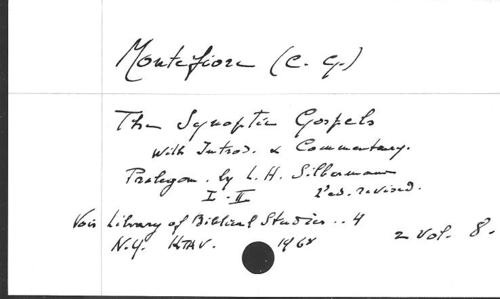 Montefiore (C. G.)
The Synoptic Gospels
with Introd. & Commentary.
Prolegom. by L. H. Silberman
I-II 2ed. revised.
Voir Library of Biblical Studies .. 4
N.Y. KTAV. 1968 2 vol. 8.